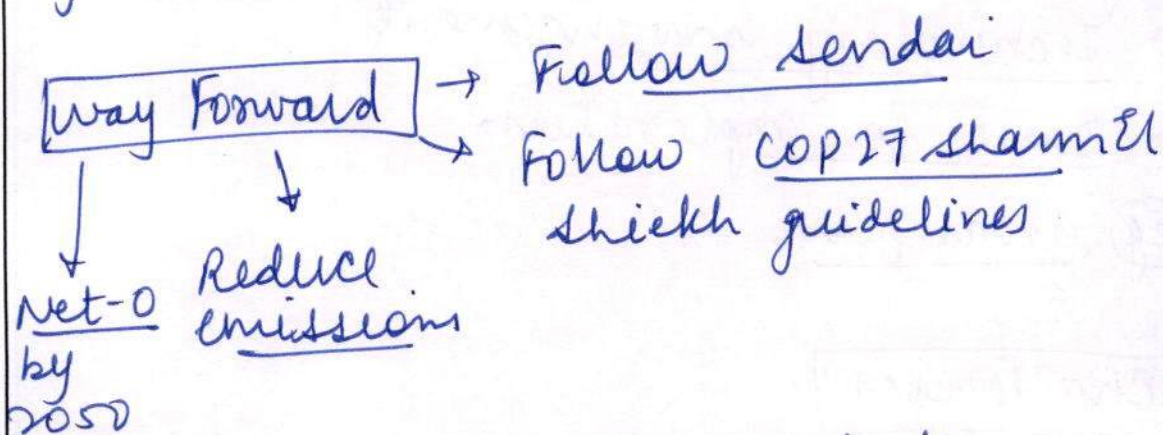 Way Forward → Follow Sendai
→ Follow COP27 Sharm El
Shiekh guidelines
↓ ↓
Net-0
by
2050
Reduce
emissions